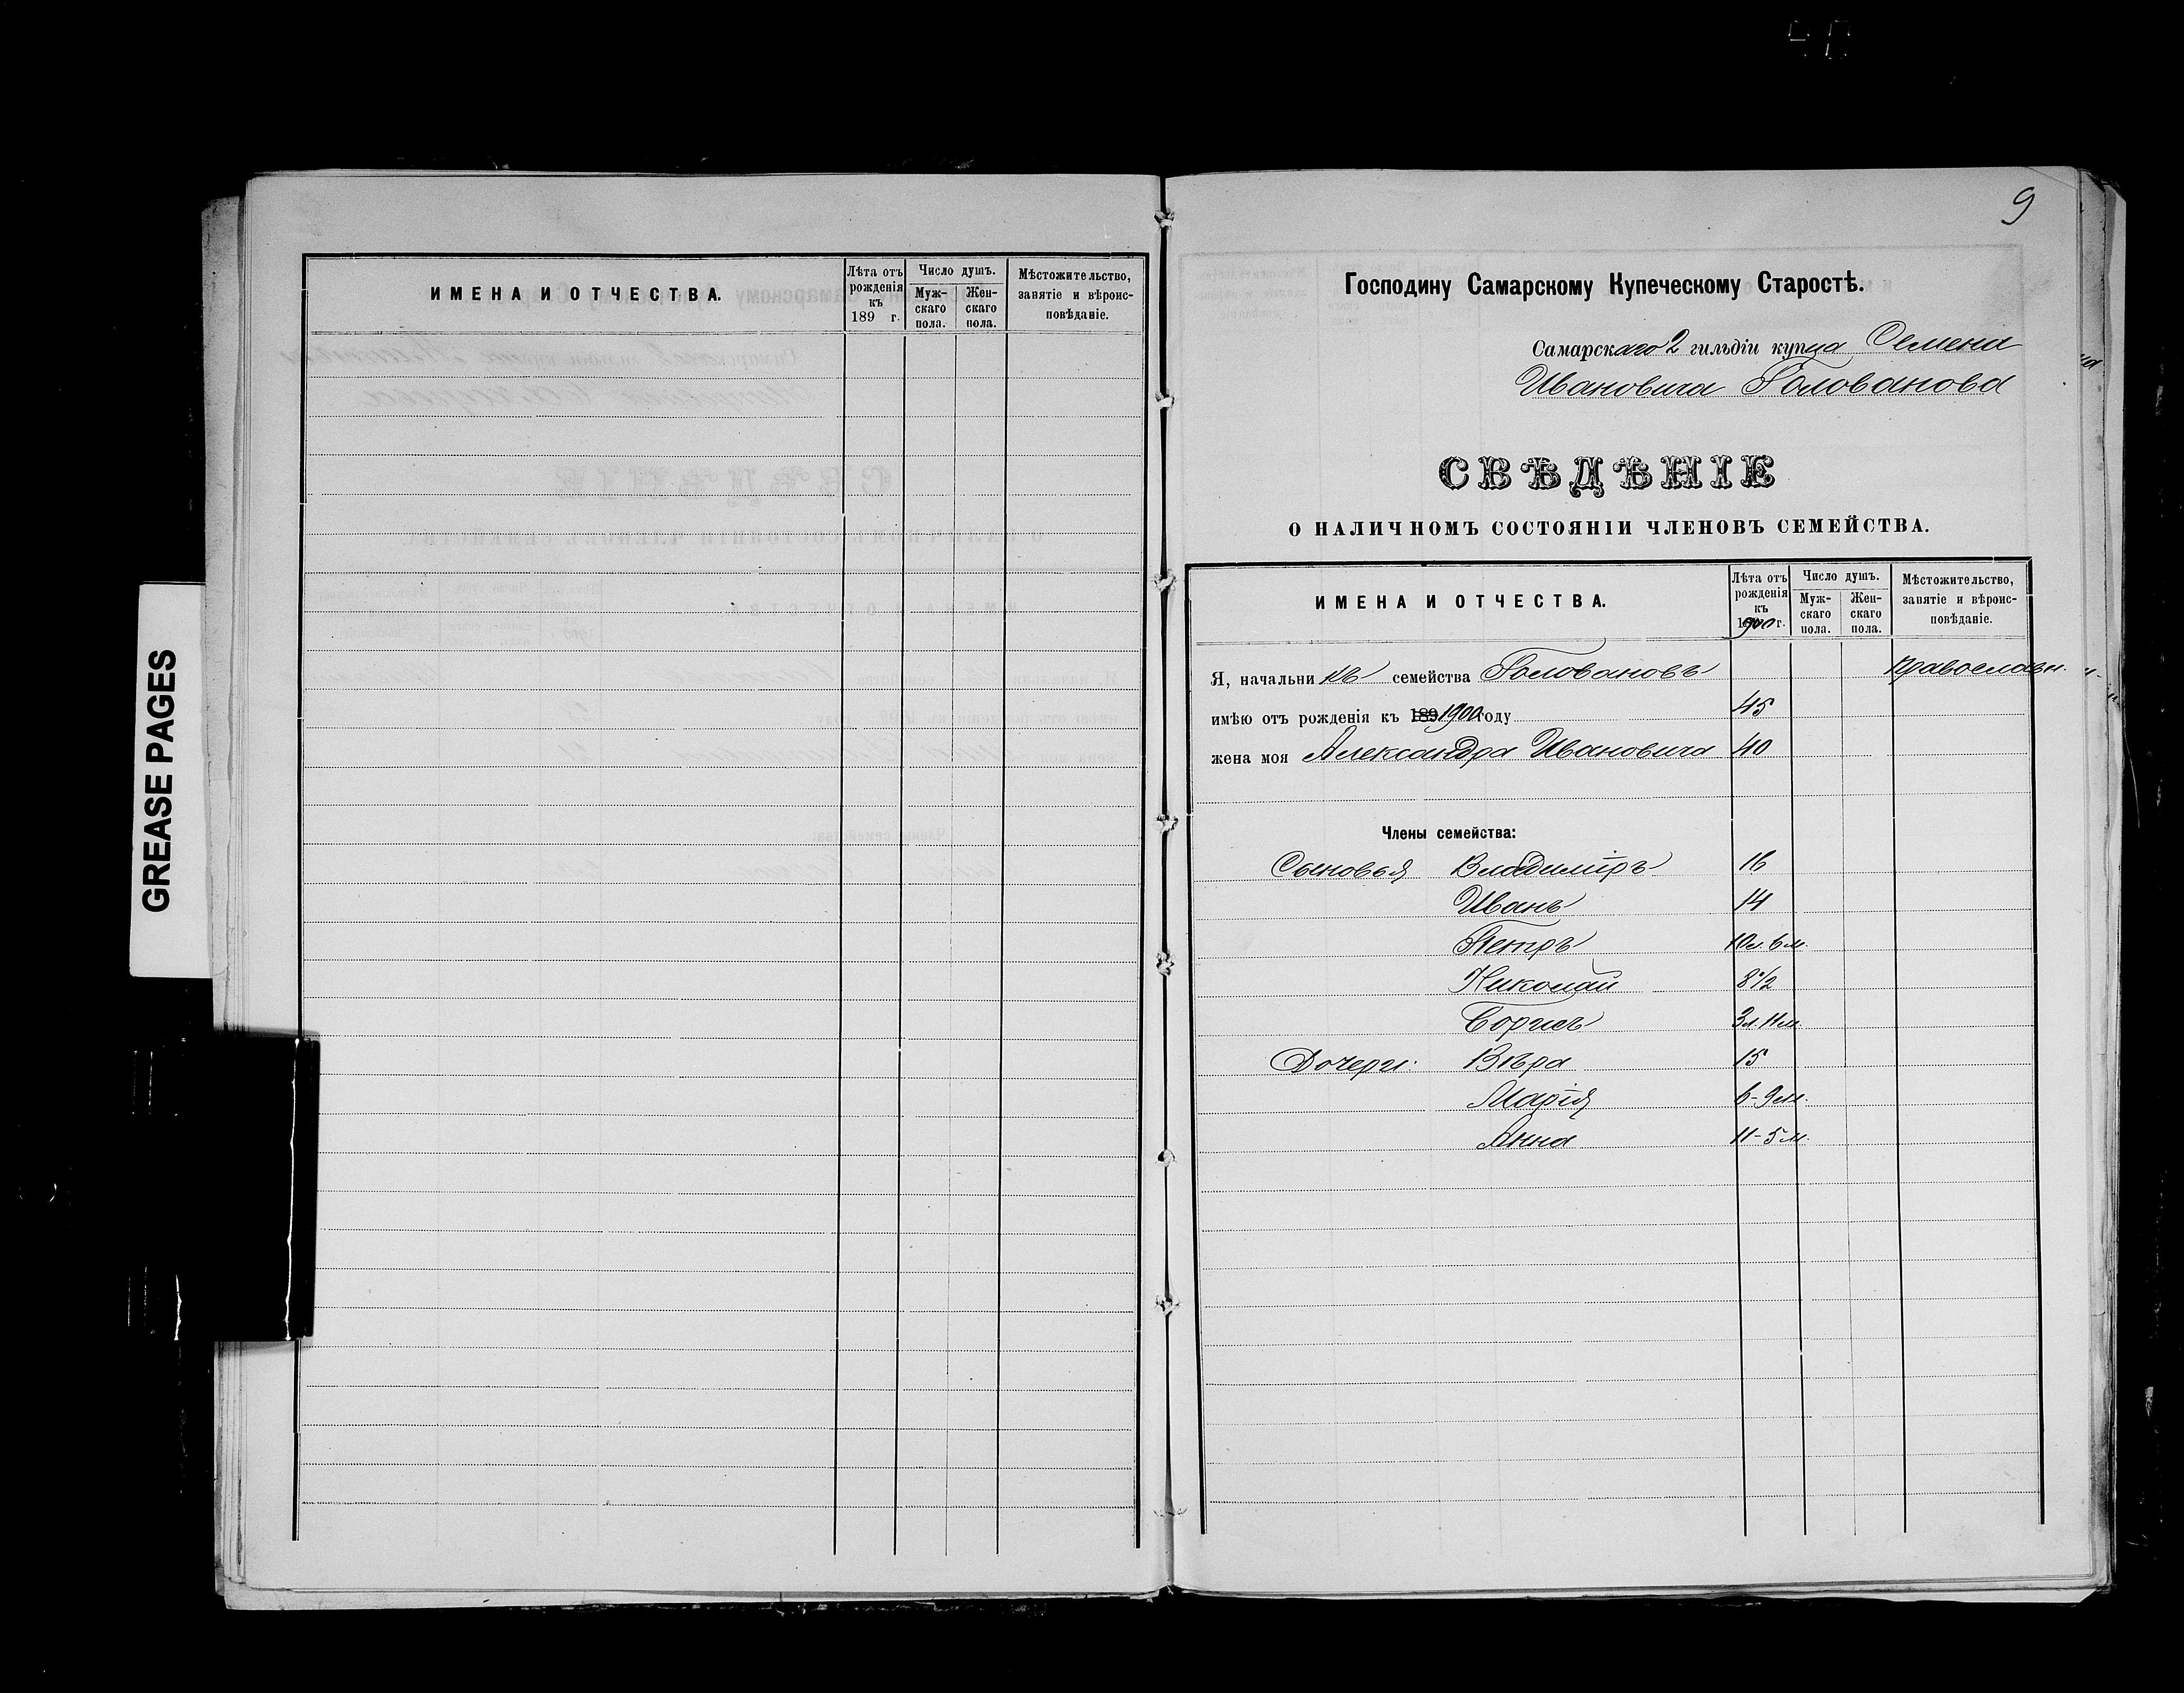 GREASE PAGES
ИМЕНА И ОТЧЕСТВА.
Лѣта отъ рожденія къ 189 г.
Число душъ.
Мужскаго пола.
Женскаго пола.
Мѣстожительство, занятіе и вѣроисповѣданіе.
9
Господину Самарскому Купеческому Старостѣ.
Самарскаго 2 гильдіи купца Семена
Ивановича Голованова
СВѢДѢНІЕ
О НАЛИЧНОМЪ СОСТОЯНІИ ЧЛЕНОВЪ СЕМЕЙСТВА.
ИМЕНА И ОТЧЕСТВА.
Лѣта отъ рожденія къ 1900 г.
Число душъ.
Мужскаго пола.
Женскаго пола.
Мѣстожительство, занятіе и вѣроисповѣданіе.
Я, начальникъ семейства Головановъ Православн.
имѣю отъ рожденія къ 189 1900 году 45
жена моя Александра Ивановича 40
Члены семейства:
Сыновья Владиміръ 16
Иванъ 14
Петръ 10 л. 6 м.
Николай 8 1/2
Борисъ 3 л. 11 м.
Дочери: Вѣра 15
Марія 6 - 9 м.
Анна 11 - 5 м.